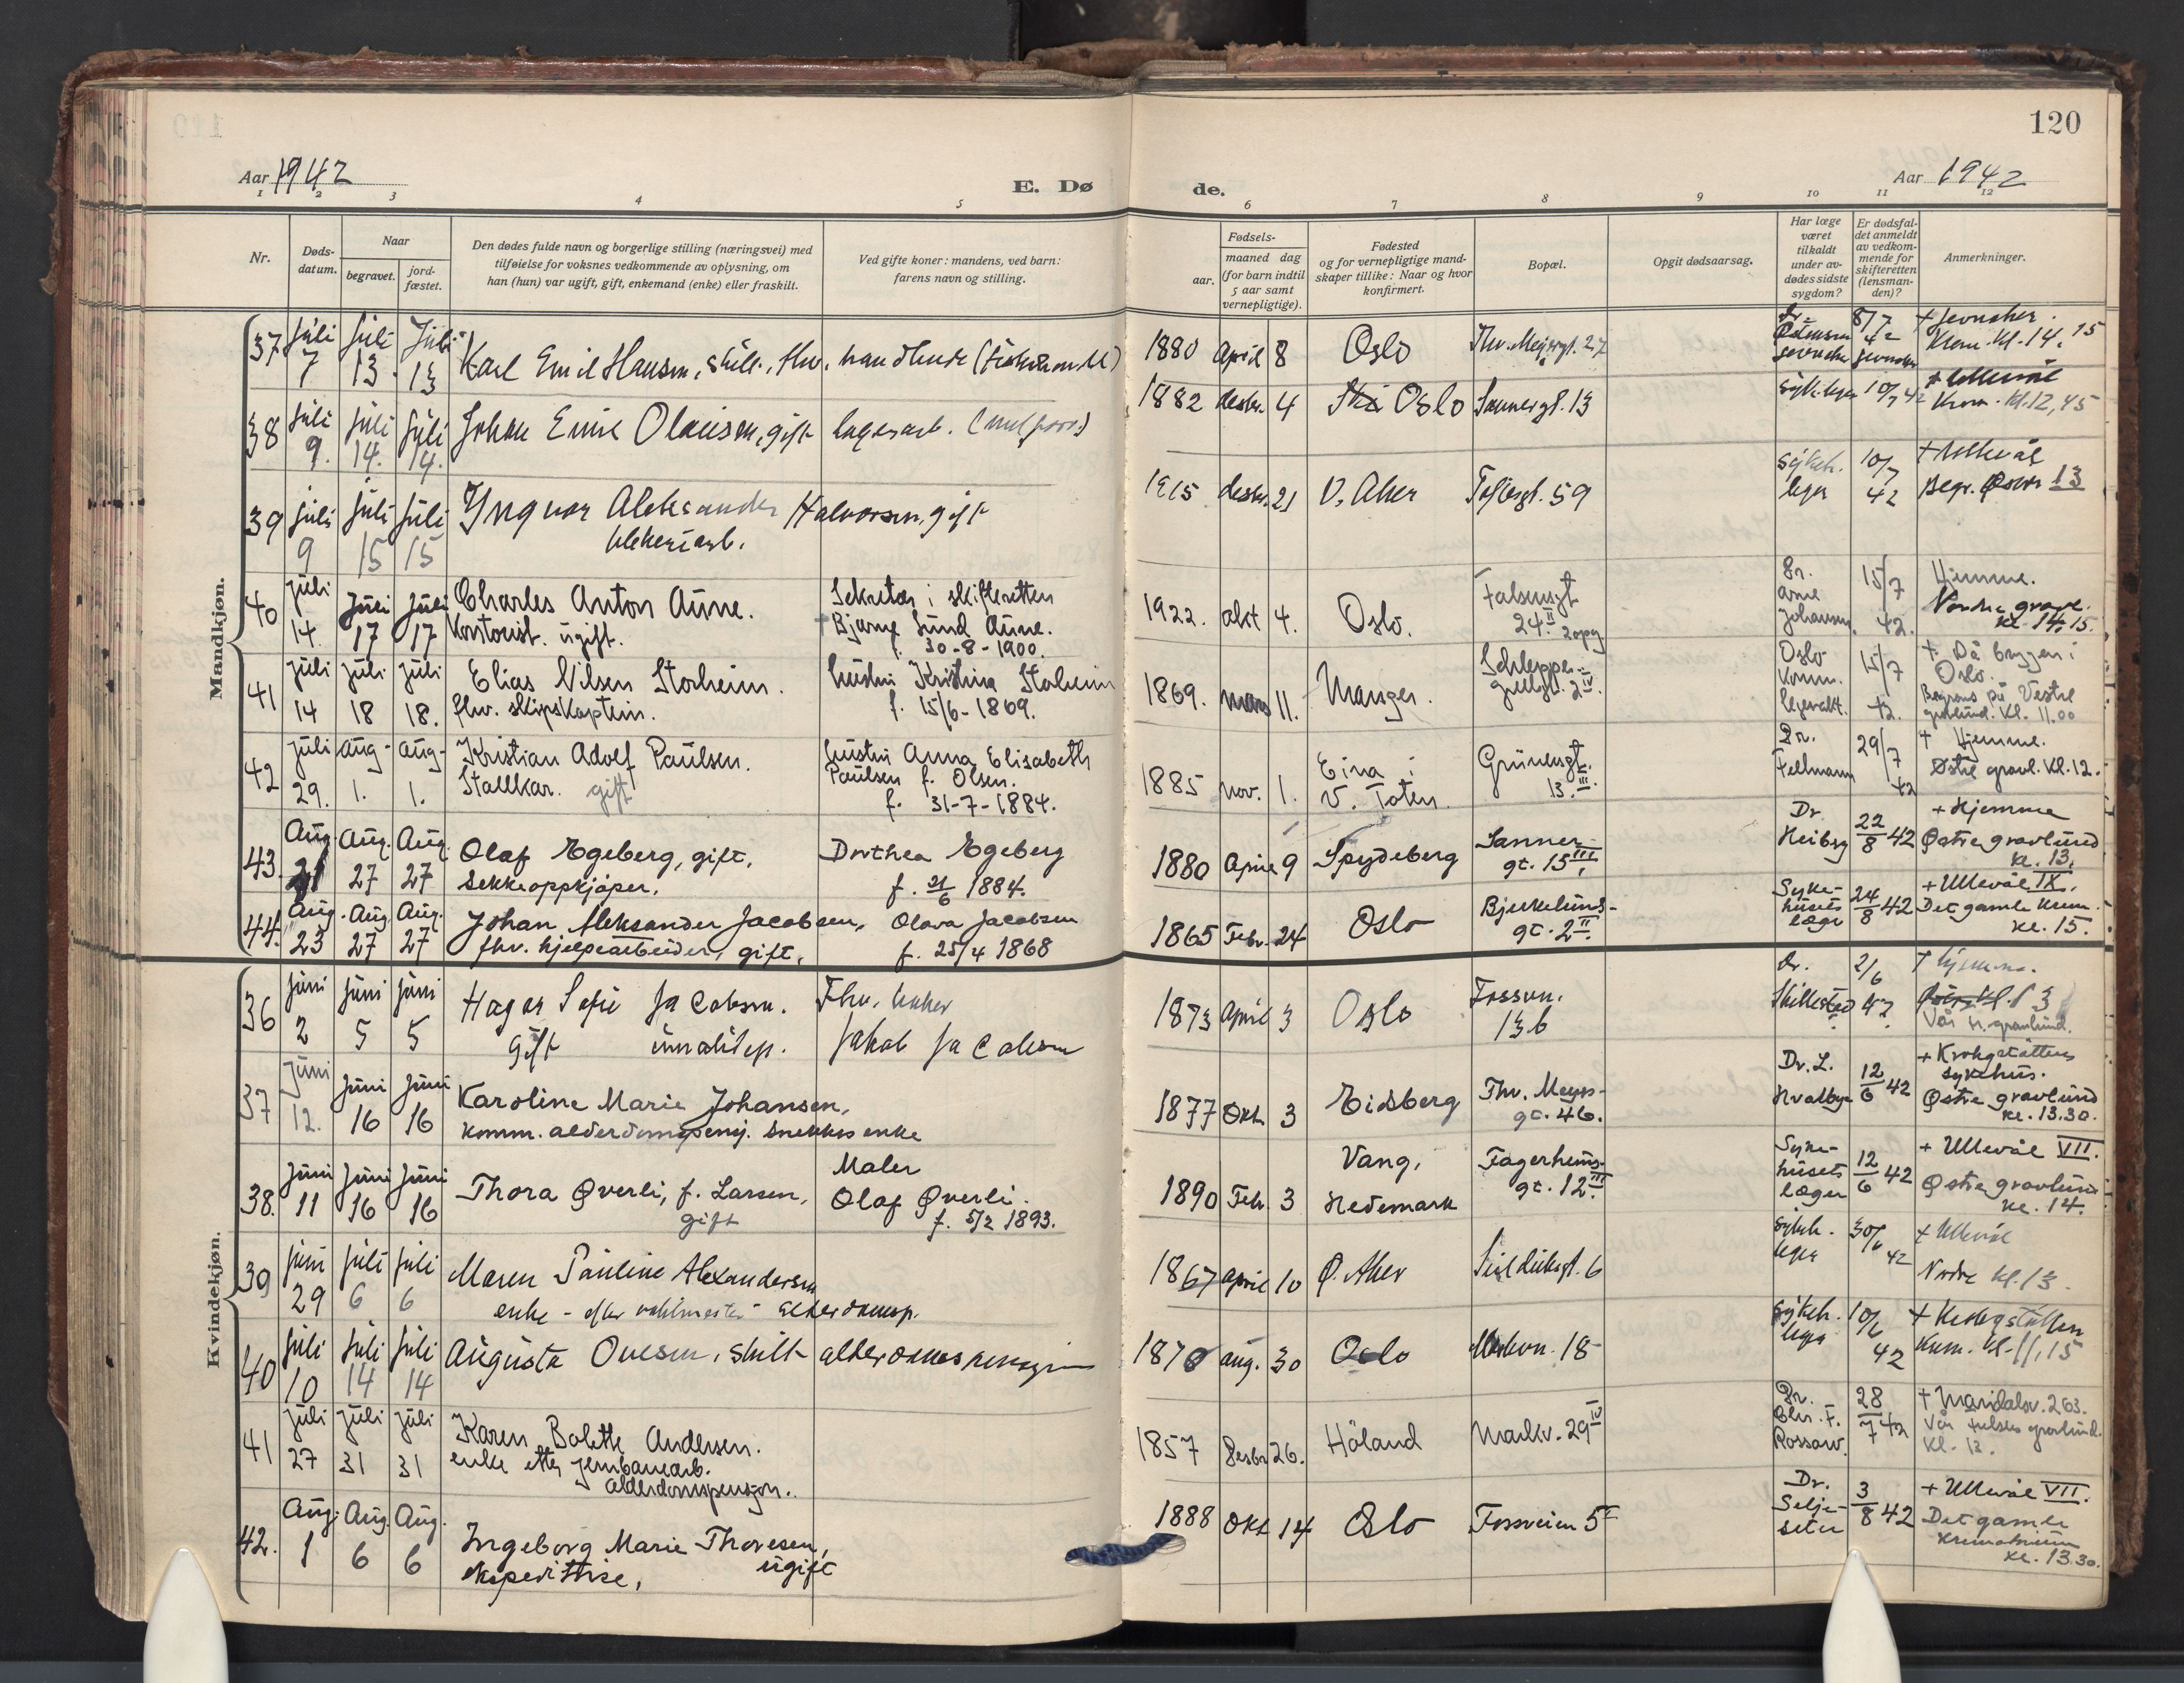 120
Aar 1942
E. Dø
de.
Aar 1942
1 2 3 4 5 6 7 8 9 10 11 12
Nr.
Døds-
datum.
Naar
begravet.
jord-
fæstet.
Den dødes fulde navn og borgerlige stilling (næringsvei) med
tilføielse for voksnes vedkommende av oplysning, om
han (hun) var ugift, gift, enkemand (enke) eller fraskilt.
Ved gifte koner: mandens, ved barn:
farens navn og stilling.
Fødsels-
aar.
maaned dag
(for barn indtil
5 aar samt
vernepligtige).
Fødested
og for vernepligtige mand-
skaper tillike: Naar og hvor
konfirmert.
Bopæl.
Opgit dødsaarsag.
Har læge
været
tilkaldt
under av-
dødes sidste
sygdom?
Er dødsfal-
det anmeldt
av vedkom-
mende for
skifteretten
(lensman-
den)?
Anmerkninger.
Mandkjøn.
37 juli 7 juli 13 juli 13 Karl Emil Hansen, skilt, fhv. 1880 April 8 Oslo Thv. Meyersgt. 27 Dr. 8/7 42 + Jevnaker.
Krem. Kl. 14,15
38 juli 9. juli 14. juli 14. Johan Emil Olausen, gift lagerarb. 1882 desbr. 4 Oslo Sannergt. 13 10/7 42 + Ullevål
Krem. Kl. 12,45
39 juli 9 juli 15 juli 15 Yngvar Aleksander Halvorsen, gift
1915 desbr. 21 V. Aker Toftesgt. 59 Sykeh.
leger 10/7 42 + Ullevål
Begr. Østre 13
40 juli 14. juli 17 juli 17 Charles Anton Aune.
Kontorist. ugift.
Sekretær i skifteretten
Bjarne Sund Aune.
f. 30-8-1900.
1922. okt 4. Oslo. Falsensgt
24 II 2 opg
Dr.
Arne
Johannsn. 15/7 42. Hjemme.
Nordre gravl.
kl. 14.15.
41 juli 14 juli 18 juli 18. Elias Nilsen Storheim.
fhv. skipskaptein.
hustru Kristina Storheim
f. 15/6-1869.
1869. mars 11. Manger. Schleppe-
grellgt. 2 IV.
Oslo
Komm.
legevakt. 15/7 42. + På bryggen i
Oslo.
Begraves på Vestre
gravlund. Kl. 11.00
42 juli 29. aug. 1. aug. 1. Kristian Adolf Paulsen.
Stallkar. gift
hustru Anna Elisabeth
Paulsen f. Olsen.
f. 31-7-1884.
1885 nov. 1. Eina i
V. Toten. Grünersgt.
13 III.
Dr.
Fellmann 29/7 42 + Hjemme.
Østre gravl. Kl. 12.
43. Aug. 21 Aug. 27 Aug. 27 Olaf Egeberg, gift,
Sekkeoppkjøper.
Dorthea Egeberg
f. 21/6 1884.
1880 April 9 Spydeberg Sanner-
gt. 15 III,
Dr.
Heiberg 22/8 42 + Hjemme
Østre gravlund
kl. 13.
44. Aug. 23 Aug. 27 Aug. 27 Johan Aleksander Jacobsen,
fhv. hjelpearbeider, gift,
Olava Jacobsen
f. 25/4 1868
1865 Febr. 24 Oslo Bjerkelunds-
gt. 2 II.
Syke-
husets
læge 24/8 42 + Ullevål IX.
Det gamle krem.
kl. 15.
Kvindekjøn.
36 juni 2 juni 5 juni 5 Hagar Sofie Jacobsen.
gift
Fhv.
Jakob Jacobsen
1873 April 3 Oslo Fossvn.
13 b
Dr.
Skillestad 2/6 42. + hjemme.
Østre Kl. 13
Vår fr. gravlund.
37 juni 12. juni 16 juni 16 Karoline Marie Johansen,
komm. alderdomspensj. snekkers enke
1877 Okt. 3 Eidsberg Thv. Meyers-
gt. 46.
Dr. L.
Hvalbye 12/6 42 + Krohgstøttens
sykehus.
Østre gravlund
kl. 13.30.
38. juni 11 juni 16 juni 16 Thora Øverli, f. Larsen,
gift
Maler
Olaf Øverli.
f. 5/2 1893.
1890 Febr. 3 Vang,
Hedemark Fagerheims-
gt. 12 III.
Syke-
husets
læger 12/6 42 + Ullevål VII.
Østre gravlund
kl. 14.
39 juni 29 juli 6 juli 6 Maren Pauline Alexandersen
enke - efter vaktmester - alderdomsp.
1867 april 10 Ø. Aker Seilduksgt. 6 sykeh.
leger 30/6 42 + Ullevål
Nordre kl. 13.
40 juli 10 juli 14 juli 14 Augusta Ouesen, skilt alderdomspensjon
1870 aug. 30 Oslo Markvn. 18 sykeh.
lege 10/6 42 + Krohgstøtten
Krem. Kl. 11,15
41 juli 27 juli 31 juli 31 Karen Bolette Andersen.
enke etter jernbanearb.
Alderdomspensjon..
1857 Desbr. 26. Høland Markv. 29 IV
Dr.
Chr. F.
Rossow. 28/7 42 + Maridalsv. 263.
Vår frelsers gravlund.
Kl. 13.
42. Aug. 1 Aug. 6 Aug. 6 Ingeborg Marie Thoresen,
ekspeditrise, ugift
1888 Okt 14 Oslo Fossveien 5 I
Dr.
Selje-
seter 3/8 42 + Ullevål VII.
Det gamle
krematorium
kl. 13.30.